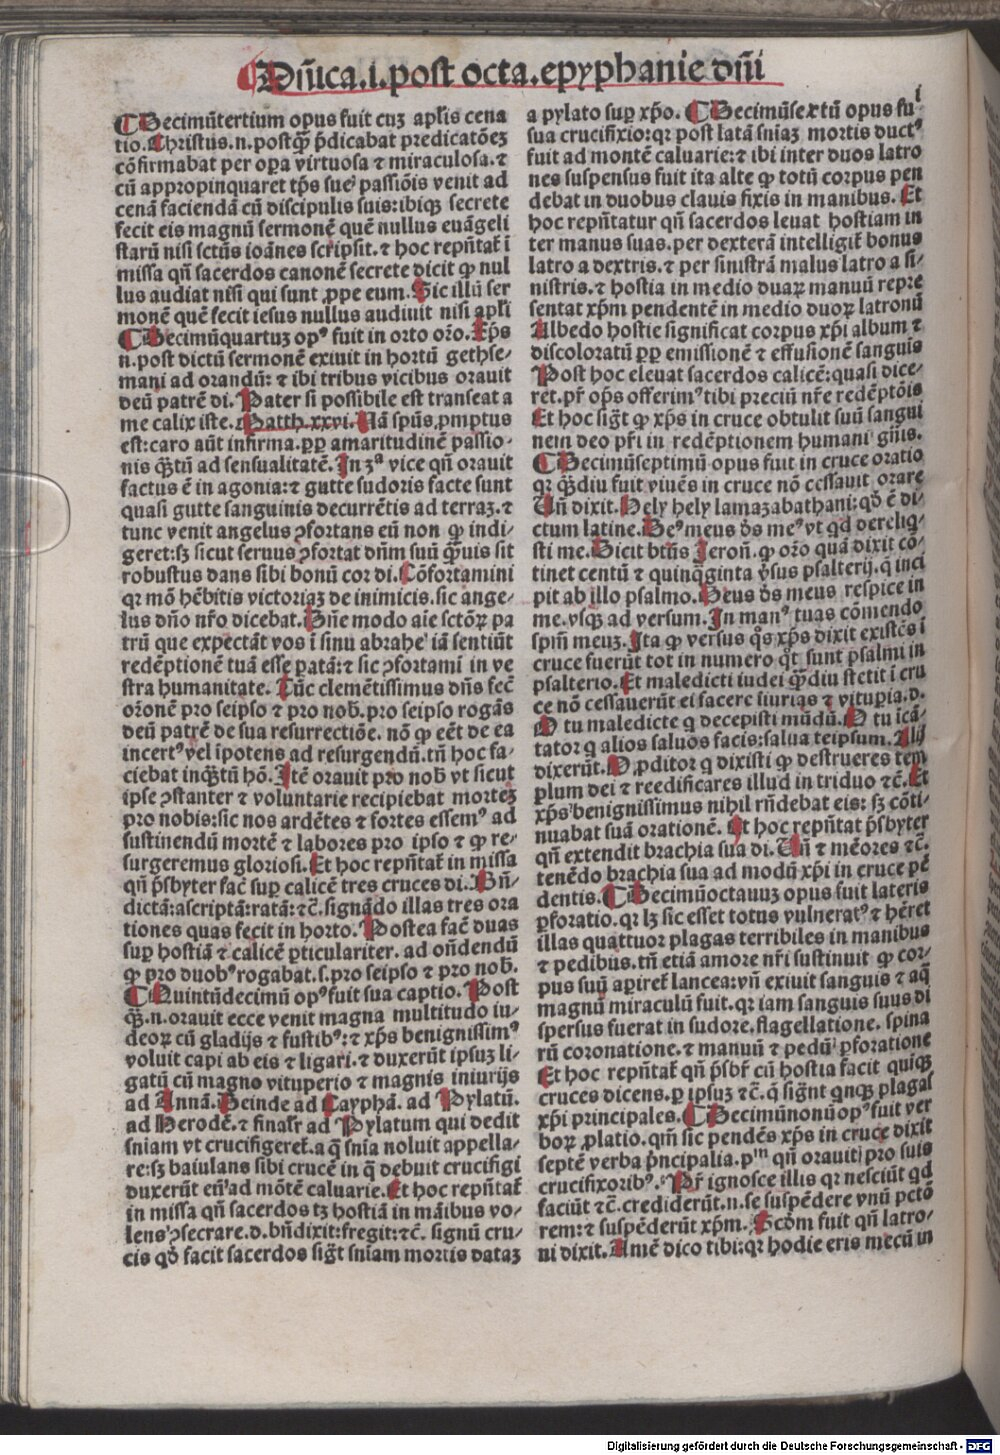 Dn̄ica.i.post octa.epyphanie dn̄i
¶ Decimūtertium opus fuit cuꝫ apl̄is cena
tio. Christus.n.postqꝫ p̄dicabat predicatōeꝫ
cōfirmabat per oꝑa virtuosa ⁊ miraculosa.⁊
cū appropinquaret tp̄s sue passiōis venit ad
cenā faciendā cū discipulis suis:ibiqꝫ secrete
fecit eis magnū sermonē quē nullus euāgeli
starū nisi sctūs ioānes scripsit.⁊ hoc repn̄tat̄ ī
missa qn̄ sacerdos canonē secrete dicit ꝙ nul
lus audiat nisi qui sunt ꝓpe eum. Sic illū ser
monē quē fecit iesus nullus audiuit nisi apl̄i
¶ Decimūquartuꝫ opꝰ fuit in orto or̄o. Xp̄s
n.post dictū sermonē exiuit in hortū gethse-
mani ad orandū: ⁊ ibi tribus vicibus orauit
deū patrē di. Pater si possibile est transeat a
me calix iste. Matth.xxvi. Nā spūs ꝓmptus
est:caro aūt infirma.ꝓꝑ amaritudinē passio-
nis qꝫtū ad sensualitatē. In 3ª vice qn̄ orauit
factus ē in agonia:⁊ gutte sudoris facte sunt
quasi gutte sanguinis decurrētis ad terraꝫ.⁊
tunc venit angelus ꝯfortans eū non ꝙ indi-
geret:sꝫ sicut seruus ꝯfortat dn̄m suū qꝫuis sit
robustus dans sibi bonū cor di. Cōfortamini
qꝛ mō hēbitis victoriaꝫ de inimicis.sic ange-
lus dn̄o nr̄o dicebat. Dn̄e modo aīe sctōꝝ pa
trū que expectāt vos ī sinu abrahe iā sentiūt
redēptionē tuā esse paratā:⁊ sic ꝯfortami in ve
stra humanitate. Tūc clemētissimus dn̄s fec̄
or̄onē pro seipso ⁊ pro nob̄.pro seipso rogās
deū patrē de sua resurrectiōe. nō ꝙ eēt de ea
incertꝰ vel īpotens ad resurgendū.tn̄ hoc fa-
ciebat inqꝫtū hō. Itē orauit pro nob̄ vt sicut
ipse ꝯstanter ⁊ voluntarie recipiebat morteꝫ
pro nobis:sic nos ardētes ⁊ fortes essemꝰ ad
sustinendū mortē ⁊ labores pro ipso ⁊ ꝙ re-
surgeremus gloriosi. Et hoc repn̄tat̄ in missa
qn̄ p̄sbyter fac̄ suꝑ calicē tres cruces di. Bn̄-
dictā:ascriptā:ratā:⁊c̄.signādo illas tres ora
tiones quas fecit in horto. Postea facē duas
suꝑ hostiā ⁊ calicē ꝑticulariter. ad on̄dendū
ꝙ pro duobꝰ rogabat.s.pro seipso ⁊ pro nob̄.
¶ Quintūdecimū opꝰ fuit sua captio. Post
qꝫ.n.orauit ecce venit magna multitudo iu-
deoꝝ cū gladijs ⁊ fustibꝰ:⁊ xp̄s benignissimꝰ
voluit capi ab eis ⁊ ligari.⁊ duxerūt ipsuꝫ li-
gatū cū magno vituperio ⁊ magnis iniurijs
ad Annā. Deinde ad Caypha. ad Pylatū.
ad Herodē. ⁊ finalr̄ ad Pylatum qui dedit
sniam vt crucifigeret̄.a q̄ snīa noluit appella-
re:sꝫ baiulans sibi crucē in q̄ debuit crucifigi
duxerūt eū ad mōtē caluarie. Et hoc repn̄tat̄
in missa qn̄ sacerdos tꝫ hostiā in māibus vo-
lens ꝯsecrare.d.bn̄dixit:fregit:⁊c̄. signū cru-
cis qd̄ facit sacerdos sigt̄ sniam mortis dataꝫ
i
a pylato suꝑ xp̄o. ¶ Decimūsextū opus fu
sua crucifixio:qꝛ post latā sniaꝫ mortis ductꝰ
fuit ad montē caluarie:⁊ ibi inter duos latro
nes suspensus fuit ita alte ꝙ totū corpus pen
debat in duobus clauis fixis in manibus. Et
hoc repn̄tatur qn̄ sacerdos leuat hostiam in
ter manus suas.per dexterā intelligit̄ bonus
latro a dextris.⁊ per sinistrā malus latro a si-
nistris.⁊ hostia in medio duaꝝ manuū repre
sentat xp̄m pendentē in medio duoꝝ latronū
Albedo hostie significat corpus xp̄i album ⁊
discoloratū ꝓꝑ emissionē ⁊ effusionē sanguis
Post hoc eleuat sacerdos calicē:quasi dice-
ret.pr̄ opˢ offerimꝰ tibi preciū nr̄e redēptōis
Et hoc sigt̄ ꝙ xp̄s in cruce obtulit suū sangui
nem deo pr̄i in redēptionem humani gn̄is.
¶ Decimūseptimū opus fuit in cruce oratio
qꝛ qꝫdiu fuit viuēs in cruce nō cessauit orare
Un̄ dixit. Hely hely lamazabathani:qd̄ ē di-
ctum latine. Deꝰ meus dˢ meꝰ vt qd dereliq-
sti me. Dicit btn̄s Jeron̄. ꝙ or̄o quā dixit cō-
tinet centū ⁊ quinqꝫginta v̓sus psalterij.q inci
pit ab illo psalmo. Deus dˢ meus respice in
me.vsqꝫ ad versum. In manꝰ tuas cōmendo
spm̄ meuꝫ. Ita ꝙ versus qˢ xp̄s dixit existēs ī
cruce fuerūt tot in numero qt̄ sunt psalmi in
psalterio. Et maledicti iudei qꝫdiu stetit ī cru
ce nō cessauerūt ei facere īiurias ⁊ vituꝑia.d.
O tu maledicte q decepisti mūdū. O tu īcā-
tator q alios saluos facis:salua teipsum. Alij
dixerūt. O ꝓditor q dixisti ꝙ destrueres tem
plum dei ⁊ reedificares illud in triduo ⁊c̄. Et
xp̄s benignissimus nihil rn̄debat eis: sꝫ cōti-
nuabat suā orationē. Et hoc repn̄tat p̄sbyter
qn̄ extendit brachia sua di. Un̄ ⁊ mēores ⁊c̄.
tenēdo brachia sua ad modū xp̄i in cruce pē
dentis. ¶ Decimūoctauuꝫ opus fuit lateris
ꝑforatio.qꝛ lꝫ sic esset totus vulneratꝰ ⁊ hēret
illas quattuor plagas terribiles in manibus
⁊ pedibus.tn̄ etiā amore nr̄i sustinuit ꝙ cor-
pus suū aꝑiret̄ lancea:vn̄ exiuit sanguis ⁊ aq̄
magnū miraculū fuit.qꝛ iam sanguis suus di
spersus fuerat in sudore.flagellatione. spina
rū coronatione.⁊ manuū ⁊ pedū ꝑforatione
Et hoc repn̄tat̄ qn̄ p̄sbr̄ cū hostia facit quiqꝫ
cruces dicens.ꝑ ipsuꝫ ⁊c̄.q̄ sign̄t qnqꝫ plagas
xp̄i principales. ¶ Decimūnonū opꝰ fuit ver
boꝝ ꝓlatio.qm̄ sic pendēs xp̄s in cruce dixit
septē verba p̄ncipalia.pᵐ qn̄ orauit pro suis
crucifixoribꝰ. Pr̄ ignosce illis qꝛ nesciūt qd
faciūt ⁊c̄.crediderūt.n.se suspēdere vnū pctō
rem:⁊ suspēderūt xp̄m. Scd̄m fuit qn̄ latro-
ni dixit. Amē dico tibi:qꝛ hodie eris mecū in
Digitalisierung gefördert durch die Deutsche Forschungsgemeinschaft - DFG